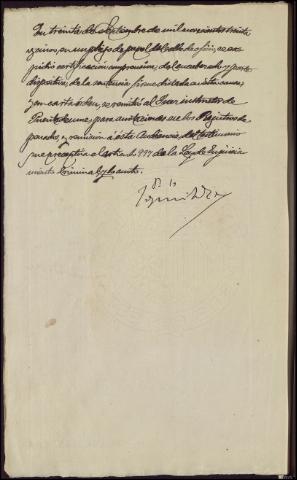 En treinta de Septiembre de mil novecientos treinta
y cinco, en un pliego de papel del sello de oficio, se ex-
pidió certificación comprensiva, del encabezado y parte
dispositiva, de la sentencia firme dictada en esta causa,
y con carta orden, se remitió al Juez instructor de
Puentedeume, para anotaciones en los Registros de
penados, y remisión a esta Audiencia, del testimonio
que preceptúa el artículo 999 de la Ley de Enjuicia
miento Criminal, doy fe